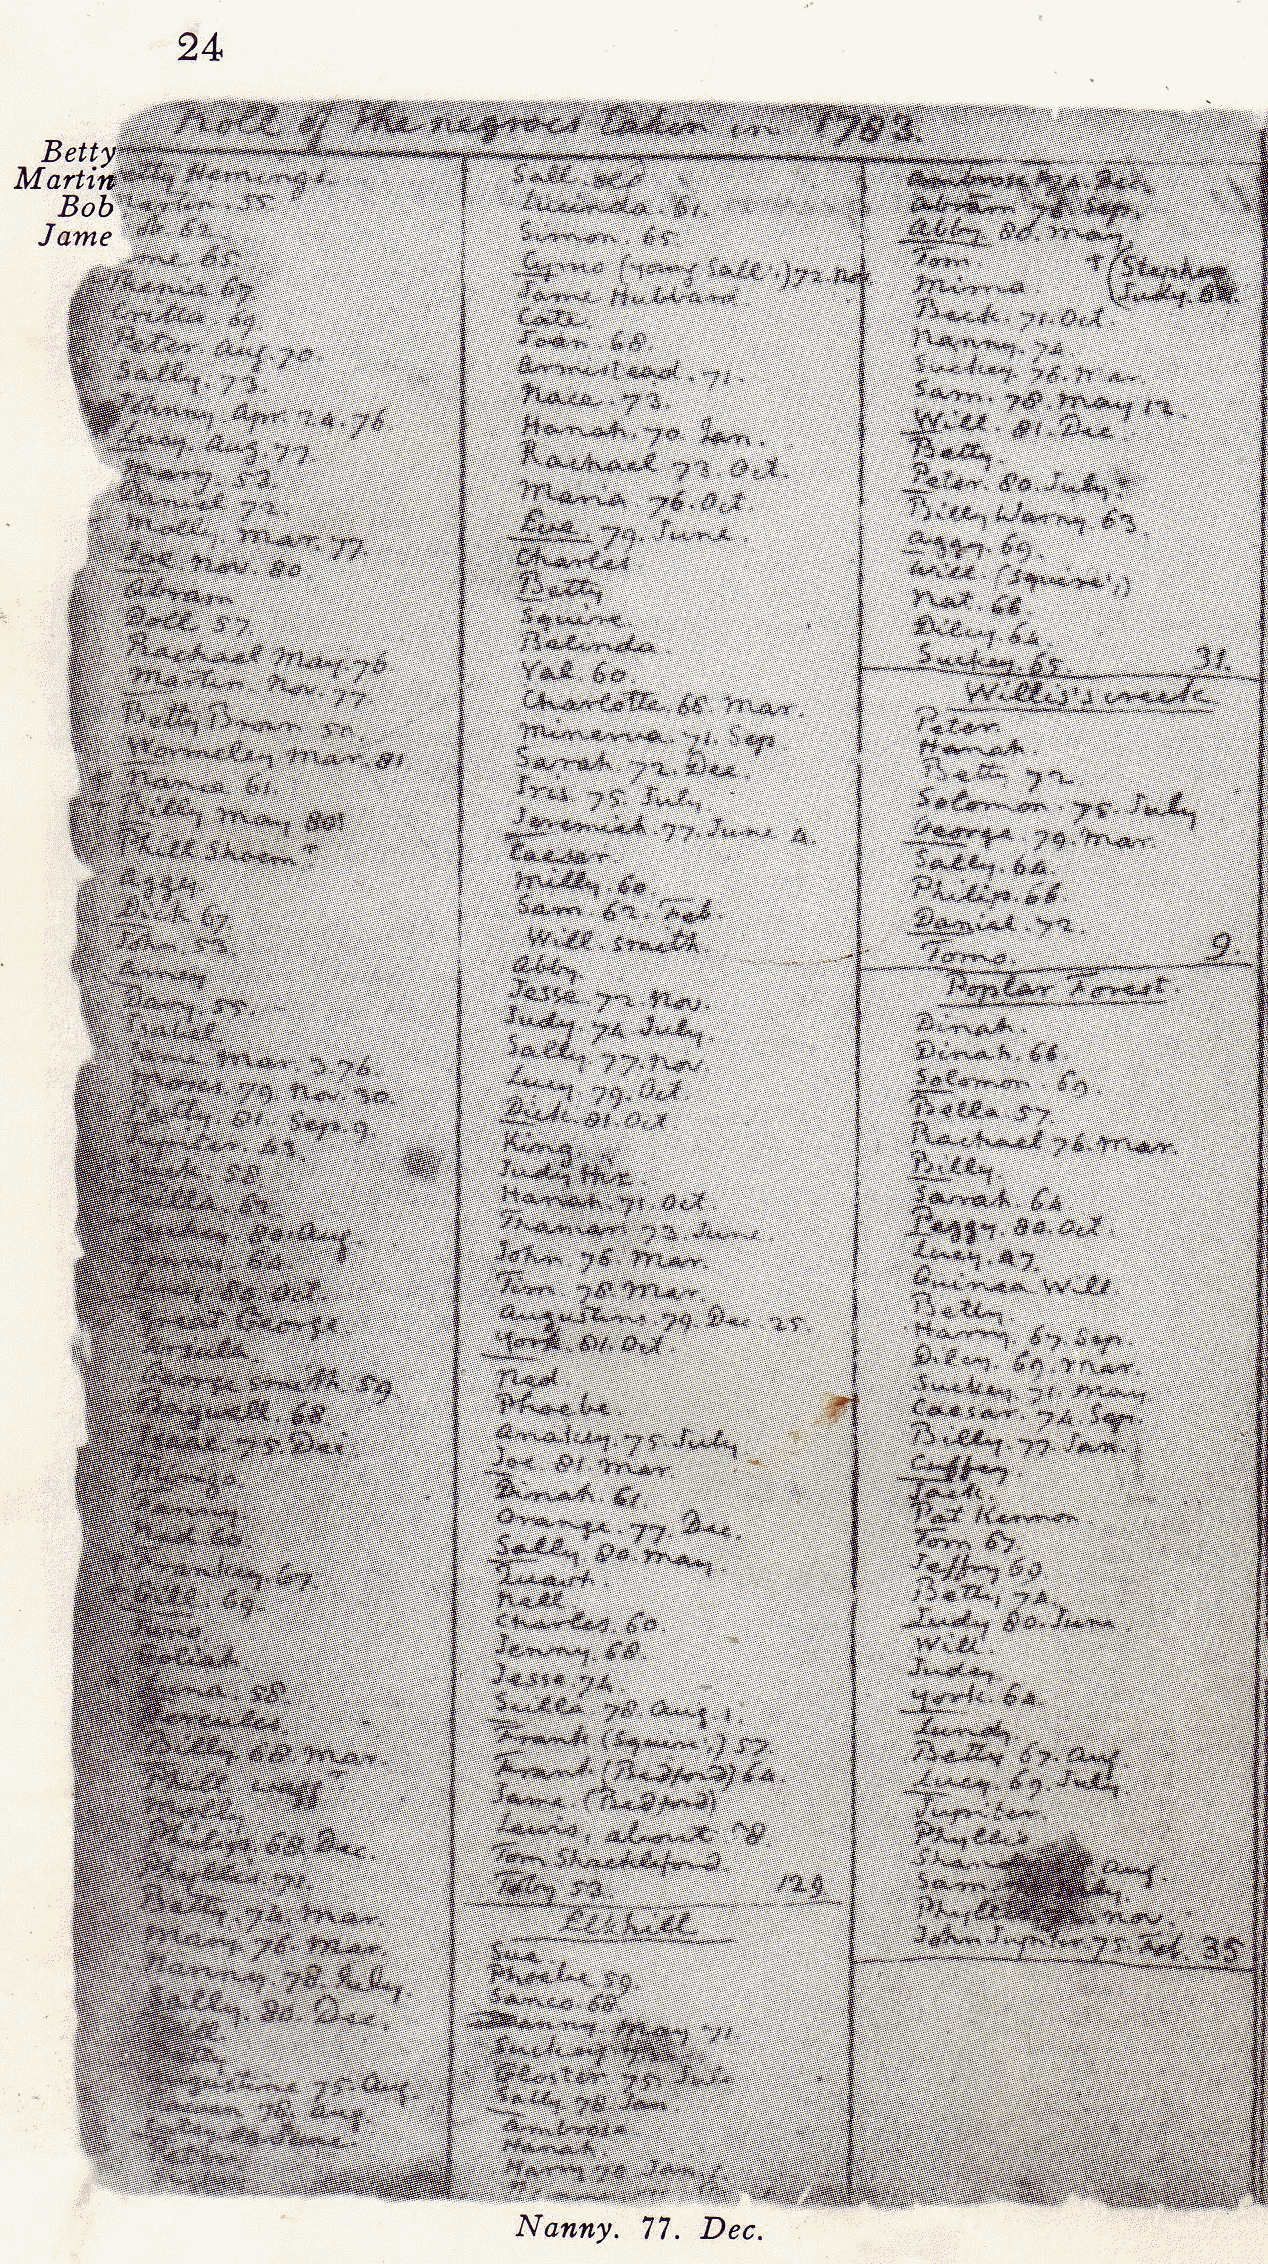 24
Roll of the negroes taken in 1783.
Betty
Martin
Bob
Jame
Betty Hemings.
Martin. 55.
Bob. 62.
Jame 65.
Thenia 67.
Critta. 69.
Peter. Aug. 70.
Sally. 73.
Johnny. Apr. 24. 76.
Lucy. Aug. 77.
Mary. 53.
Daniel 72.
Molly. Mar. 77.
Joe. Nov. 80
Abram
Doll 57
Rachael May. 76
Martin. Nov. 77
Betty Brown 59.
Wormeley Mar. 81
+ Nance 61.
+ Billy May 80
Phill Shoem
Aggy
Dick 67
John. 53.
Amey
Davy. 55.
Isabel
Jame Mar. 3. 76.
Moses 79. Nov. 30.
Patty. 81. Sep. 9.
Jupiter. 43.
58.
80. Aug.
64.
80. Oct.
Great George.
Ursula.
George smith. 59
Bagwell. 68
Isaac. 75. Dec.
Mingo
Fanny
Ned 60.
Frankey 67.
Gill 69.
Juno
Goliah
58.
Hercules.
Billy. 68 Mar.
Phill wagg
Molly
Philip. 68. Dec.
Phyllis. 71.
Betty. 74. Mar.
Mary 76. Mar.
Nanny. 78. July.
Sally. 80. Dec.
Augustine 75. Aug.
78. Aug.
June.
Sall. old
Lucinda. 61.
Simon. 65
Cyrus (young Sall's) 72. Nov.
Jame Hubbard.
Cate.
Joan. 68.
Armistead. 71.
Nace. 73.
Hanah. 70. Jan.
Rachael 73. Oct.
Maria. 76. Oct.
Eve. 79. June.
Charles.
Betty
Squire.
Belinda.
Val. 60.
Charlotte. 68. Mar.
Minerva. 71. Sep.
Sarah. 72. Dec.
Iris. 75. July.
Jeremiah. 77. June 4.
Caesar.
Milly. 60
Sam. 62. Feb.
Will. smith
Abby
Jesse. 72. Nov.
Judy. 74 July.
Sally. 77. Nov.
Lucy. 79. Oct.
Dick. 81. Oct
King
Judy Hix.
Hanah. 71. Oct.
Thamar. 73. June.
John 76. Mar.
Tim. 78. Mar.
Augustine. 79. Dec. 25.
York. 81. Oct.
Ned
Phoebe.
Anakey. 75. July
Joe 81. Mar.
Dinah. 61.
Orange. 77. Dec.
Sally. 80. May.
Quash.
Nell
Charles. 60.
Jenny. 68.
Jesse 74.
Sulla 78. Aug. 1.
Frank (Squire's) 57.
Frank (Bedford) 64.
Jame. (Bedford)
Lewis, about 78.
Tom Shackleford.
Toby 53. 129.
Elkhill
Sue
Phoebe 59.
Sanco. 68
Nanny. May 71.
Suckey
Gloster 75. July
Sally 78. Jan
Ambrose
Hanah.
Harry 70 Jan.
Nanny. 77. Dec.
Ambrose 74. Dec.
Abram 78. Sep.
Abby 80. May.
Tom. + (Stephen
Mima. (Judy. 80.
Beck. 71. Oct.
Nanny. 74.
Suckey 76. Mar.
Sam. 78. May 12.
Will. 81. Dec.
Betty.
Peter. 80. July
Billy Warny. 63.
Aggy. 69.
Will. (Squire's)
Nat. 66.
Dilcy. 64.
Suckey. 65. 31.
Willis's creek
Peter.
Hanah.
Betty 72
Solomon. 75. July
George 79. Mar.
Sally. 64.
Philip. 66.
Daniel. 72.
Tomo. 9.
Poplar Forest.
Dinah.
Dinah. 66.
Solomon. 69.
Bella. 57.
Rachael 76. Mar.
Billy.
Sarah. 64
Peggy. 80. Oct.
Lucy. 47.
Guinea Will.
Betty.
Harry. 67. Sep.
Dilcy. 69. Mar.
Suckey. 71. May
Caesar. 74. Sep.
Billy. 77. Jan.
Cuffey.
Jack.
Pat Kennon.
Tom 67.
Jeffry 69.
Betty 74
Judy 80. June.
Will.
Judey.
York. 64.
Lundy
Betty 67. Aug
Lucy. 69. July.
Jupiter.
Phyllis
Aug.
Sam
Phyllis Nov.
John Jupiter. 75. Feb. 35